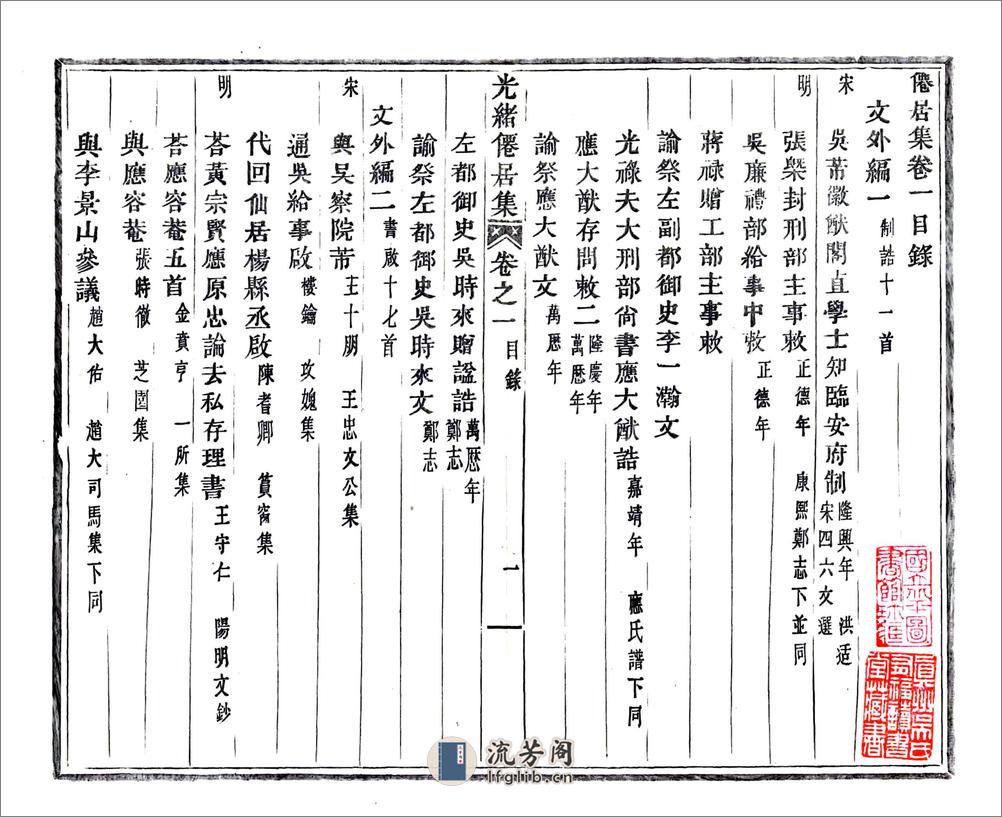 僊居集卷一目錄
文外編一 制誥十一首
宋
吳芾徽猷閣直學士知臨安府制 隆興年 洪适 宋四六文選
明
張㮣封刑部主事敕 正德年 康熙鄭志下並同
吳廉禮部給事中敕 正德年
蔣祿贈工部主事敕
諭祭左副都御史李一瀚文
光祿夫大刑部尚書應大猷誥 嘉靖年 應氏譜下同
應大猷存問敕二 隆慶年 萬厯年
諭祭應大猷文 萬厯年
光緒僊居集 卷之一 目錄 一
左都御史吳時來贈諡誥 萬厯年 鄭志
諭祭左都御史吳時來文 鄭志
文外編二 書啟十七首
宋
與吳察院芾 王十朋 王忠文公集
通吳給事啟 樓鑰 攻媿集
代回仙居楊縣丞啟 陳耆卿 篔窗集
明
荅黃宗賢應原忠論去私存理書 王守仁 陽明文鈔
荅應容菴五首 金賁亨 一所集
與應容菴 張時徹 芝園集
與李景山參議 趙大佑 趙大司馬集下同
流芳阁
lfglib.cn